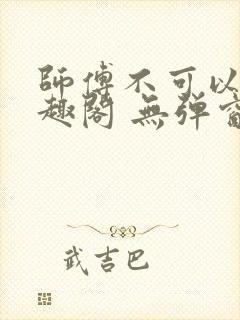 師傅不可以
趣閣 無彈窗
武吉巴